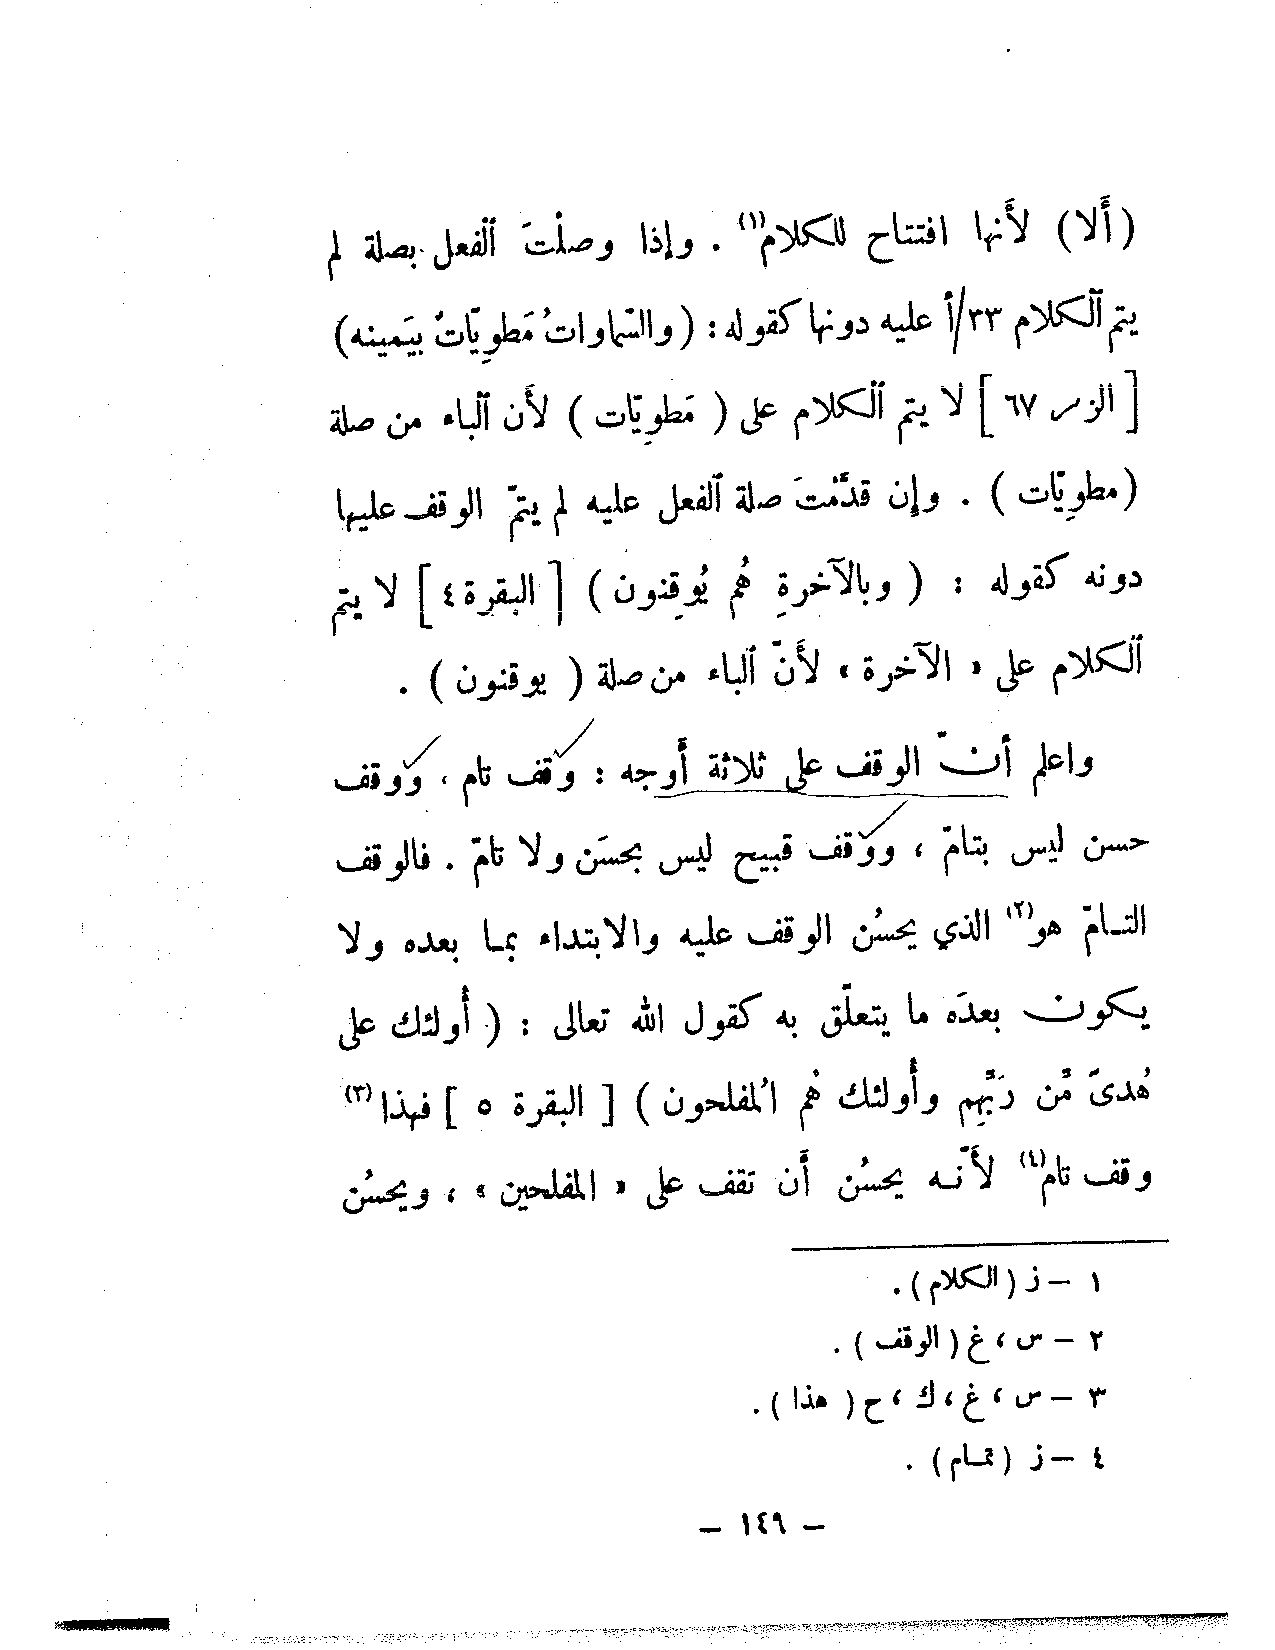 (أَلا) لأَنها افتتاح للكلام(١) . وإذا وصلْتَ ٱلفعل بصلة لم
يتم ٱلكلام ٣٣/أ عليه دونها كقوله : (والسَّماواتُ مَطوِيّاتٌ بيَمينه)
[ الزمر ٦٧ ] لا يتم ٱلكلام على ( مَطوِيّات ) لأَن ٱلباء من صلة
(مطوِيّات ) . وإن قدَّمْتَ صلة ٱلفعل عليه لم يتمّ الوقف عليها
دونه كقوله : ( وبالآخرةِ هُم يُوقِنون ) [ البقرة ٤ ] لا يتم
ٱلكلام على « الآخرة » لأَنّ ٱلباء من صلة ( يوقنون ) .
واعلم أَنّ الوقف على ثلاثة أَوجه : وقف تام ، ووقف
حسن ليس بتامّ ، ووقف قبيح ليس بحسَن ولا تامّ . فالوقف
التامّ هو(٢) الذي يحسُن الوقف عليه والابتداء بما بعده ولا
يكون بعدَه ما يتعلّق به كقول الله تعالى : ( أُولئك على
هُدىً مِّن رَبِّهِم وأُولئك هُم المُفلحون ) [ البقرة ٥ ] فهذا(٣)
وقف تام(٤) لأَنّه يحسُن أَن تقف على « المفلحين » ، ويحسُن
١ – ز ( الكلام ) .
٢ – س ، غ ( الوقف ) .
٣ – س ، غ ، ك ، ح ( هذا ) .
٤ – ز ( تمام ) .
– ١٤٩ –